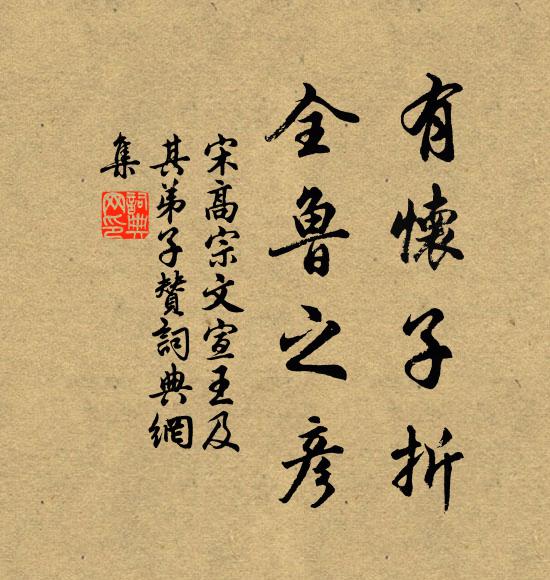 有懷子折
全魯之彥
宋高宗文宣王及
其弟子贊詞典網
集
詞典
网印